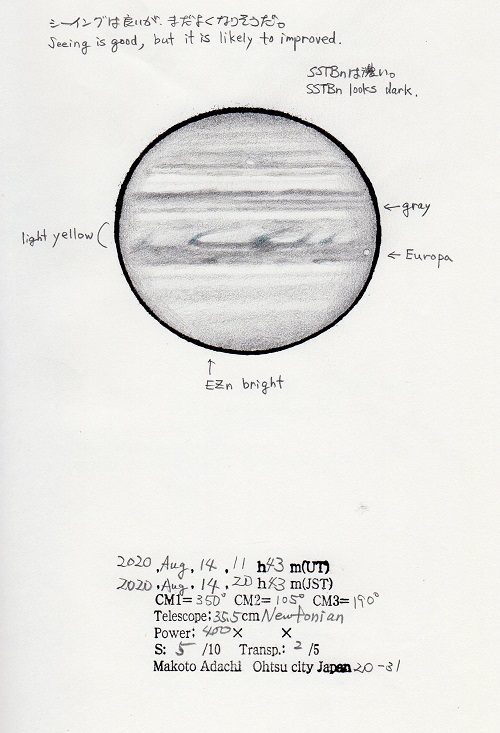 シーイングは良いが、まだよくなりそうだ。
Seeing is good, but it is likely to improved.
SSTBnは濃い。
SSTBn looks dark.
← gray
light yellow (
← Europa
↑
EZn bright
2020 .Aug. 14 .11 h43 m(UT)
2020 .Aug. 14 .20 h43 m(JST)
CM1=350° CM2=105° CM3=190°
Telescope:35.5cm Newtonian
Power: 400× ×
S: 5 /10 Transp.: 2 /5
Makoto Adachi Ohtsu city Japan 20-31